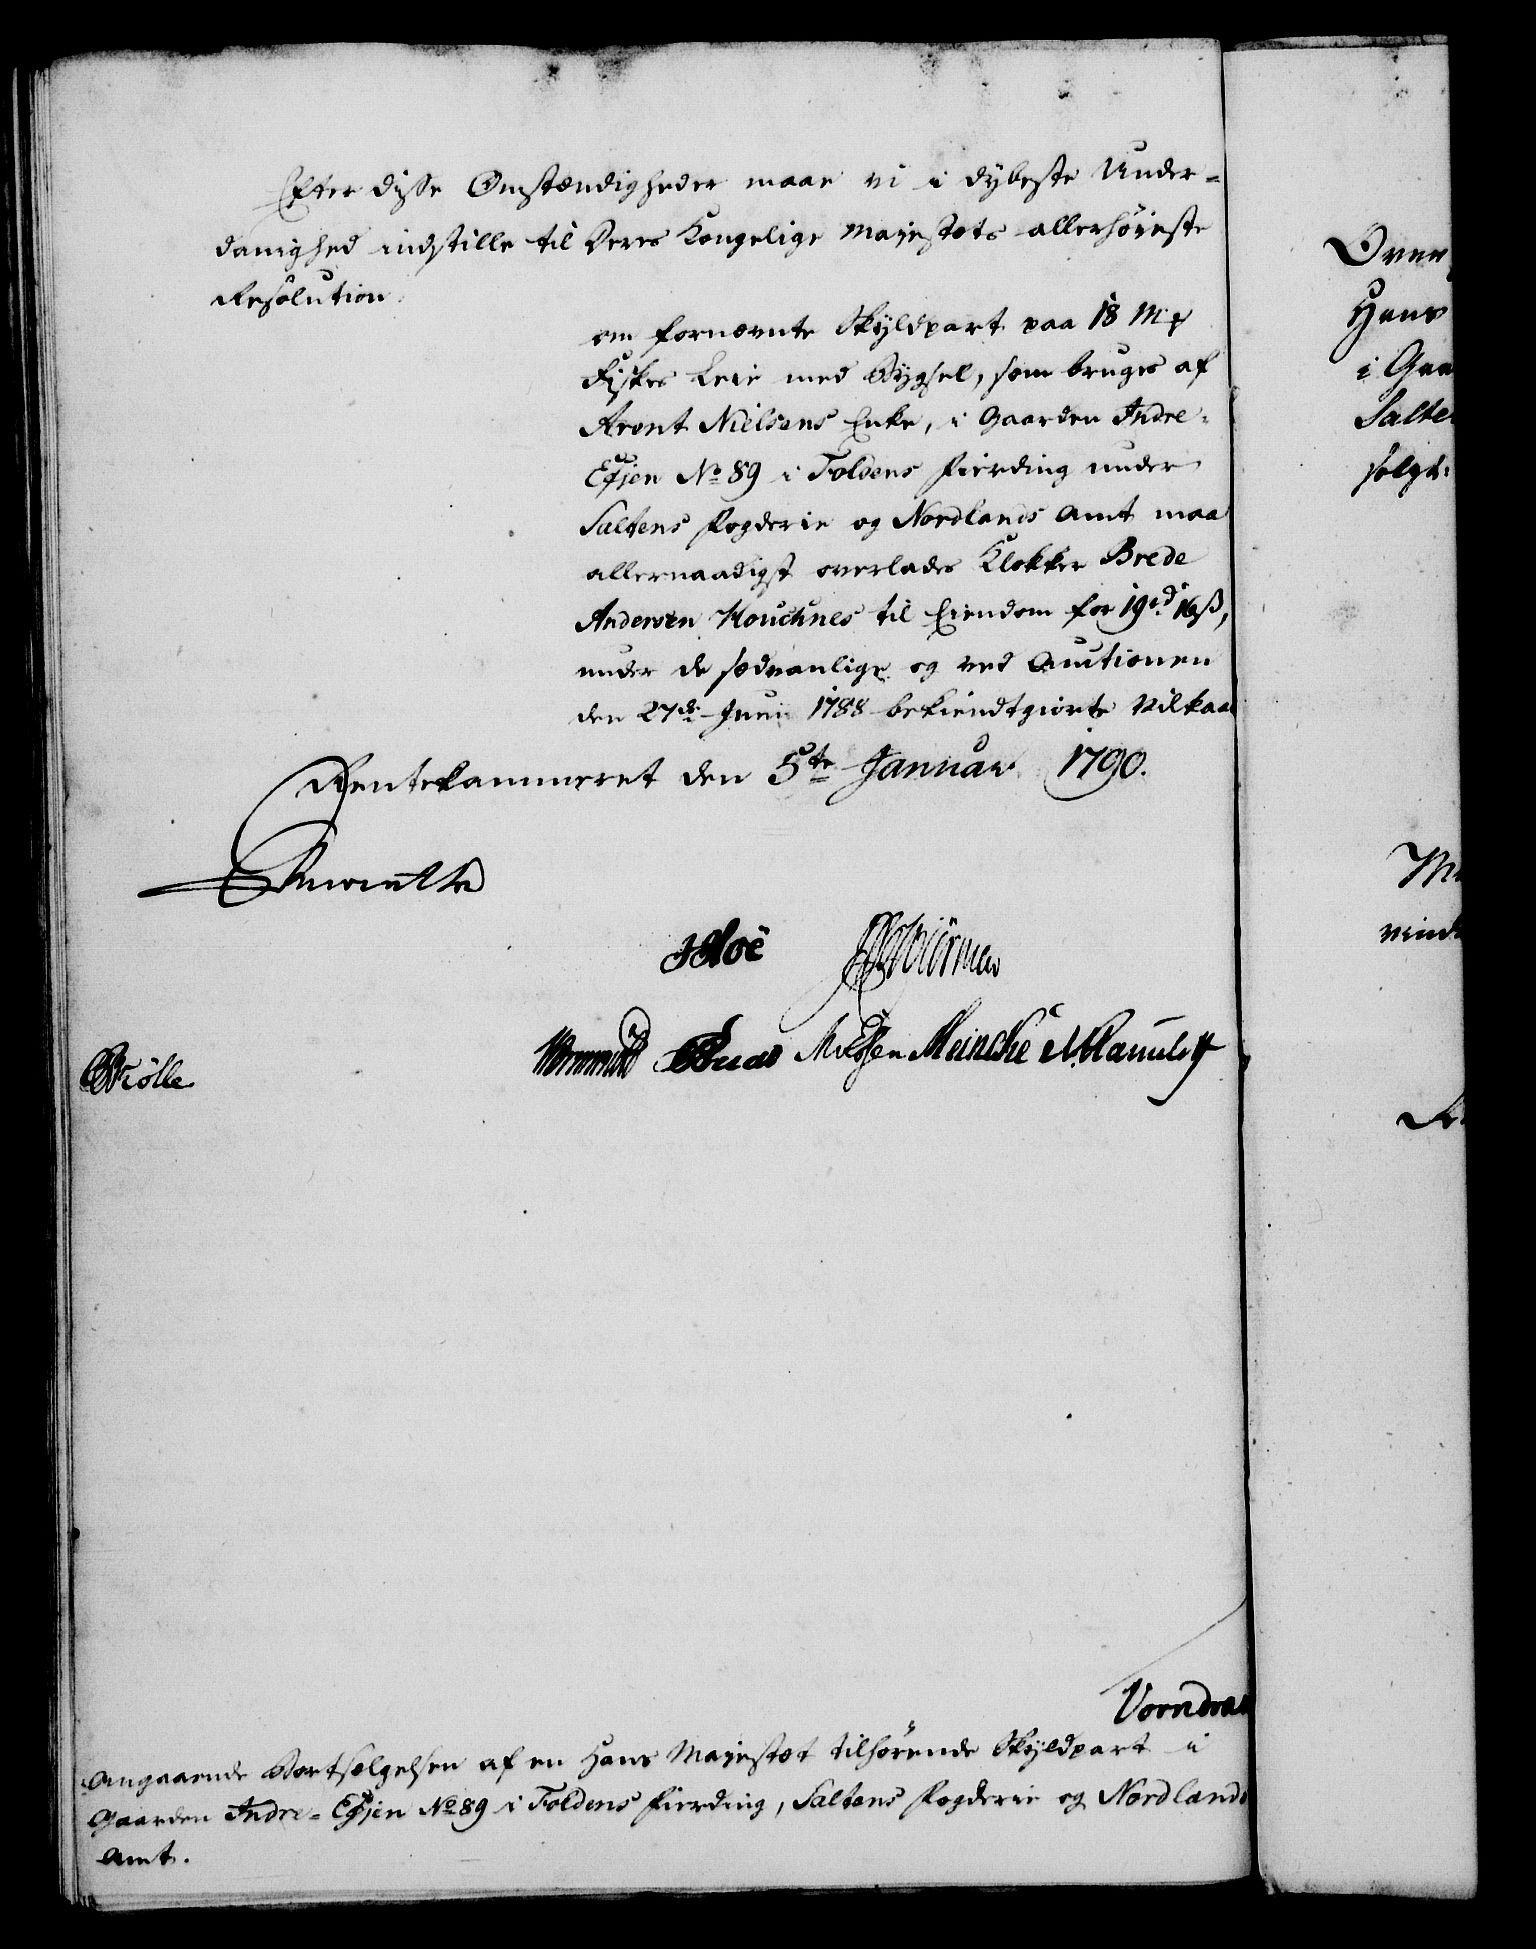 Efter disse Omstændigheder maae vi i dybeste Under-
danighed indstille til Deres Kongelige Majestæts allerhöieste
Resolution:
om fornævnte Skyldpart paa 18 Mp
Fiskes Leie med Bygsel, som bruges af
Aront Nielsens Enke, i Gaarden Indre-
Efjen No 89 i Foldens Fierding under
Saltens Fogderie og Nordlands Amt maa
allernaadigst overlades Klokker Brede
Andersen Kouchnes til Eiendom for 19rd 16ß,
under de sædvanlige og ved Auctionen
den 27de Juni 1788 bekiendtgiorte Vilkaar
Rentekammeret den 5te Januar 1790.
Hoë
Meinche
Angaaende Bortsælgelsen af en Hans Majestæt tilhörende Skyldpart i
Gaarden Indre-Efjen No 89 i Foldens Fierding, Saltens Fogderie og Nordlands
Amt.
Hans
i Gaa
Salte
solgt